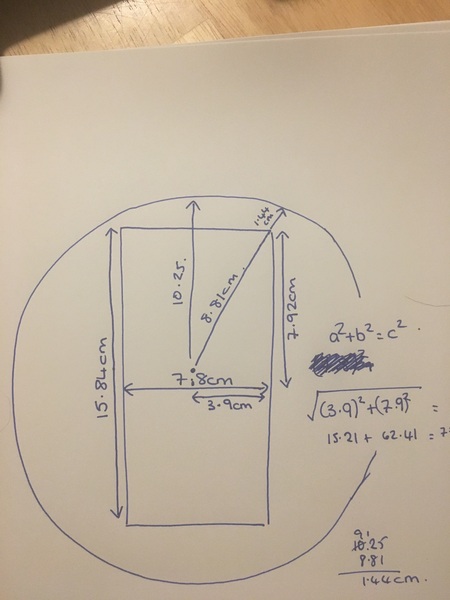 1.44
cm
10.25.
8.81cm.
7.92cm
15.84cm
7.8cm
3.9cm
a²+b²=c².
√(3.9)²+(7.9)² =
15.21 + 62.41 = 7
9 1
10.25
8.81
1.44cm.